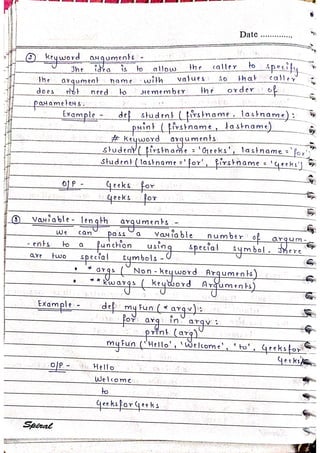 Date ............
② Keyword arguments -
The idea is to allow the caller to specify
the argument name with values so that caller
does not need to remember the order of
parameters.
Example - def student ( firstname , lastname ) :
print ( firstname , lastname )
# Keyword arguments
student ( firstname = 'Geeks', lastname = 'for'
student ( lastname = 'for', firstname = 'Geeks')
O/P - Geeks for
Geeks for
③ Variable - length arguments -
we can pass a variable number of argum-
-ents to a function using special symbol. There
are two special symbols -
• * args ( Non - keyword Arguments)
• ** kwargs ( keyword Arguments)
Example - def myFun ( * argv ) :
for arg in argv :
print (arg)
myFun ('Hello', 'Welcome', 'to', Geeksfor
Geeks)
O/P - Hello
Welcome
to
GeeksforGeeks
Spiral